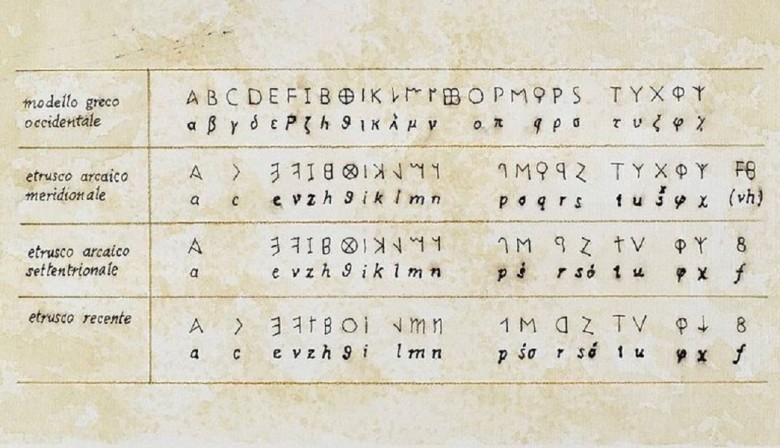 modello greco
occidentale
A B C D E F I B ⊕ I K 𐌋 𐌌 𐌍 ⊞ O P M Ϙ P S T Y X Φ 𐌙
α β γ δ ε Ϝ ζ h ϑ ι κ λ μ ν ο π q ρ σ τ υ ξ φ χ
etrusco arcaico
meridionale
𐌀 𐌂 𐌄 𐌅 I B ⊗ I 𐌊 𐌋 𐌌 𐌍 𐌐 M Ϙ 𐌓 𐌔 T Y X Φ 𐌙 FB
a c e v z h ϑ i k l m n p σ q r s t u š φ χ (vh)
etrusco arcaico
settentrionale
𐌀 𐌄 𐌅 I B ⊗ I 𐌊 𐌋 𐌌 𐌍 𐌐 M 𐌓 𐌔 † V Φ 𐌙 8
a e v z h ϑ i k l m n p ś r s σ́ t u φ χ f
etrusco recente
𐌀 𐌂 𐌄 𐌅 ‡ B O I 𐌋 𐌌 𐌍 𐌐 M 𐌓 𐌔 T V Φ ↓ 8
a c e v z h ϑ i l m n p ś σ r s σ́ t u φ χ f